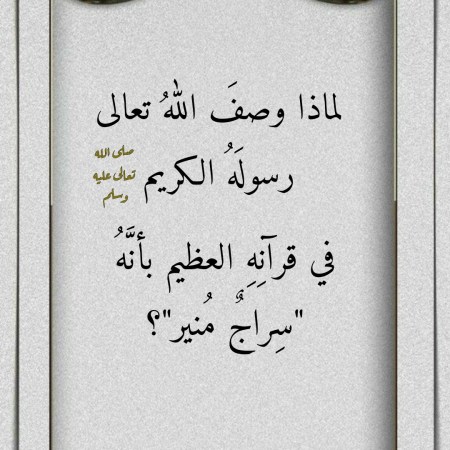 لماذا وصفَ اللهُ تعالى
رسولَهُ الكريم صلى الله تعالى عليه وسلم
في قرآنِهِ العظيم بأنَّهُ
"سِراجٌ مُنير"؟